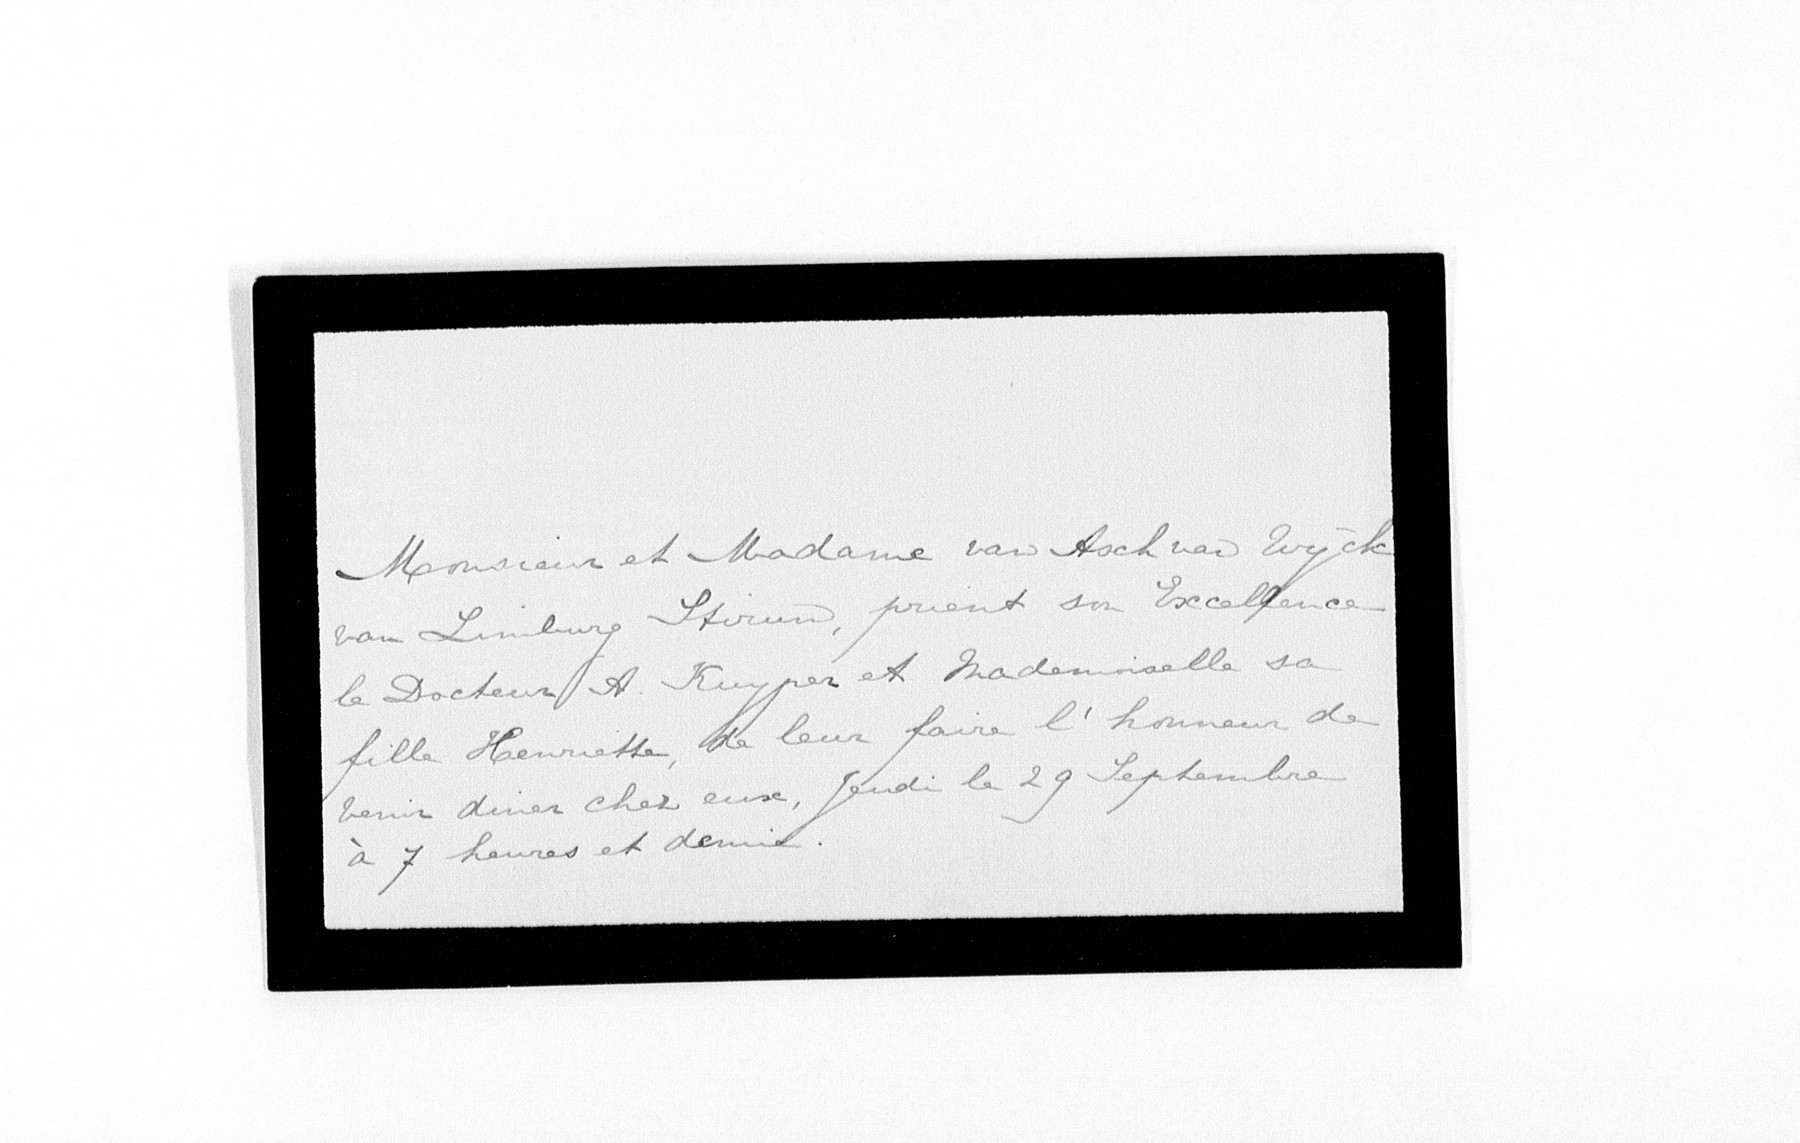 Monsieur et Madame van Asch van Wijck
van Limburg Stirum, prient son Excellence
le Docteur A. Kuyper et Mademoiselle sa
fille Henriette, de leur faire l'honneur de
venir diner chez eux, Jeudi le 29 Septembre
à 7 heures et demie.